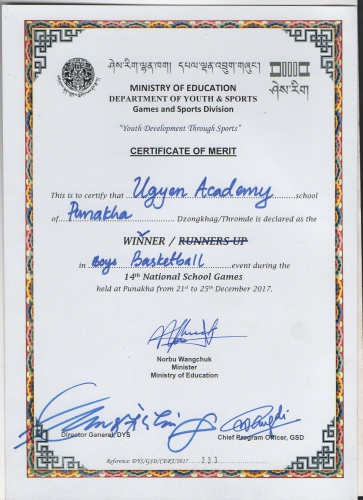 ཤེས་རིག་ལྷན་ཁག། དཔལ་ལྡན་འབྲུག་གཞུང་།
ཤེས་རིག
MINISTRY OF EDUCATION
DEPARTMENT OF YOUTH & SPORTS
Games and Sports Division
"Youth Development Through Sports"
CERTIFICATE OF MERIT
This is to certify that Ugyen Academy school
of Punakha Dzongkhag/Thromde is declared as the
WINNER / RUNNERS-UP
in Boys Basketball event during the
14th National School Games
held at Punakha from 21st to 25th December 2017.
Norbu Wangchuk
Minister
Ministry of Education
Director General DYS
Chief Program Officer, GSD
Reference: DYS/GSD/CERT/2017 233